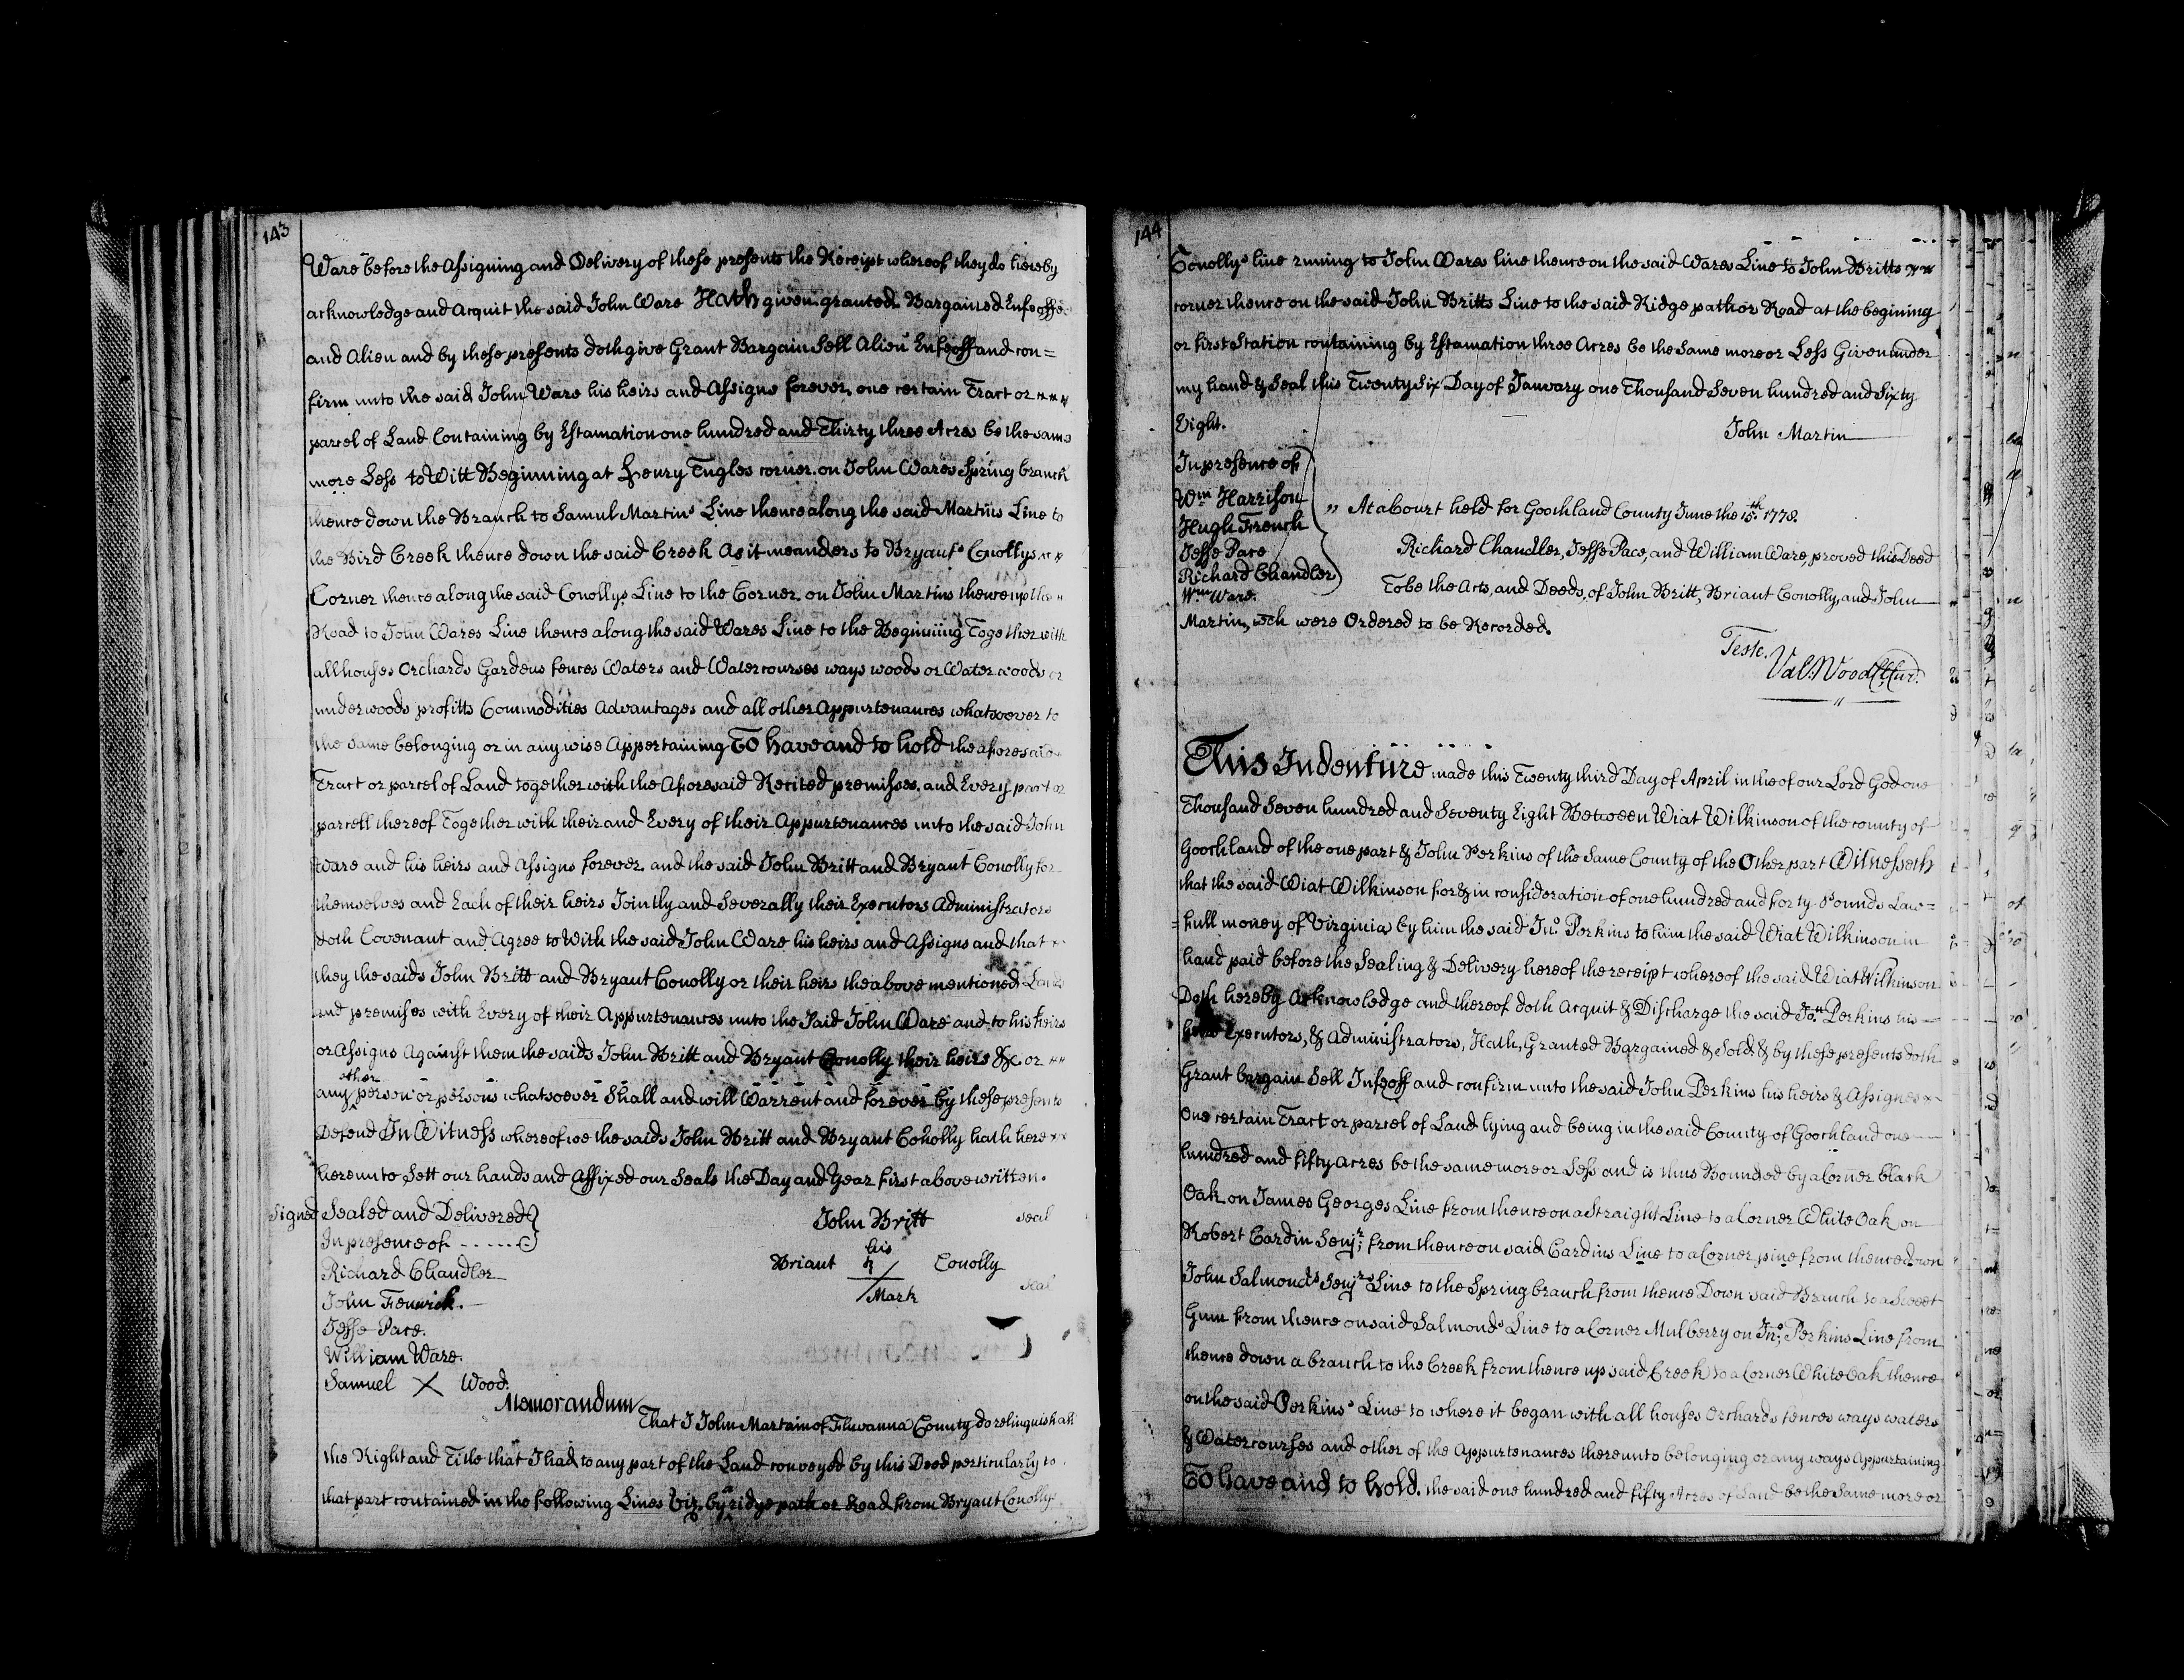 143
Ware before the Assigning and Delivery of these presents the Receipt whereof they do hereby
acknowledge and Acquit the said John Ware Hath given granted Bargained Enfeoffed
and Alien and by these presents doth give Grant Bargain Sell Alien Enfeoff and con=
firm unto the said John Ware his heirs and Assigns forever, one certain Tract or
parcel of Land Containing by Estamation one hundred and Thirty three Acres be the same
more Less to Witt Beginning at Henry Tugles corner. on John Wares Spring branch
thence down the Branch to Samul Martins Line thence along the said Martins Line to
the Bird Creek thence down the said Creek As it meanders to Bryants Conollys
Corner thence along the said Conollys Line to the Corner, on John Martins thence up the
Road to John Wares Line thence along the said Wares Line to the Beginning Together with
all houses Orchards Gardens fences Waters and Watercourses ways woods or Water woods or
underwoods profitts Commodities Advantages and all other Appurtenances whatsoever to
the same belonging or in any wise Appertaining To have and to hold the aforesaid
Tract or parcel of Land together with the Aforesaid Recited premisses. and Every part or
parcell thereof Together with their and Every of their Appurtenances unto the said John
Ware and his heirs and Assigns forever and the said John Britt and Bryant Conolly for
themselves and Each of their heirs Jointly and Severally their Executors Administrators
doth Covenant and Agree to With the said John Ware his heirs and Assigns and that
they the saids John Britt and Bryant Conolly or their heirs the above mentioned Land
and premises with Every of their Appurtenances unto the Said John Ware and to his heirs
or Assigns Against them the saids John Britt and Bryant Conolly their heirs &c or
any other person or persons whatsoever Shall and will Warrent and forever by these presents
Defend In Witness whereof we the saids John Britt and Bryant Conolly hath here
hereunto Sett our hands and Affixed our Seals the Day and Year first above written.
Signed Sealed and Delivered
In presence of
John Britt seal
Richard Chandler
Briant his Mark Conolly seal
John Fenwick.
Jesse Pace.
William Ware.
Samuel X Wood.
Memorandum
That I John Martain of Fluvanna County do relinquish all
the Right and Title that I had to any part of the Land conveyed by this Deed perticularly to
that part contained in the following Lines Viz. by a ridge path or Road from Bryant Conollys
144
Conollys line runing to John Wares line thence on the said Wares Line to John Britts
corner thence on the said John Britts Line to the said Ridge path or Road at the begining
or first Station containing by Estamation three Acres be the Same more or Less Given under
my hand & Seal this Twenty Six Day of January one Thousand Seven hundred and Sixty
Eight.
John Martin
In presence of
Wm Harrison
Hugh French
Jesse Pace
Richard Chandler
Wm Ware.
" At a Court held for Goochland County June the 15th 1778.
Richard Chandler, Jesse Pace, and William Ware, proved this Deed
To be the Acts, and Deeds, of John Britt, Briant Conolly, and John
Martin, wch were Ordered to be Recorded.
Teste.
Val. Wood Cl Cur.
This Indenture made this Twenty third Day of April in the of our Lord God one
Thousand Seven hundred and Seventy Eight Between Wiat Wilkinson of the county of
Goochland of the one part & John Perkins of the Same County of the Other part Witnesseth
that the said Wiat Wilkinson for & in consideration of one hundred and forty Pounds Law=
=full money of Virginia by him the said Jno. Perkins to him the said Wiat Wilkinson in
hand paid before the Sealing & Delivery hereof the receipt whereof the said Wiat Wilkinson
Doth hereby Acknowledge and thereof doth Acquit & Discharge the said Jon. Perkins his
heirs Executors, & Administrators, Hath, Granted Bargained & Sold, & by these presents doth
Grant bargain Sell Infeoff and confirm unto the said John Perkins his heirs & Assignes
One certain Tract or parcel of Land lying and being in the said County of Goochland one
hundred and fifty Acres be the same more or Less and is thus Bounded by a Corner black
Oak on James Georges Line from thence on a Straight Line to a Corner White Oak on
Robert Cardin Senjr; from thence on said Cardins Line to a Corner pine from thence down
John Salmonds Senjrs Line to the Spring branch from thence Down said Branch to a Sweet
Gum from thence on said Salmonds Line to a Corner Mulberry on Jno; Perkins Line from
thence down a branch to the Creek from thence up said Creek to a Corner White Oak thence
on the said Perkins's Line to where it began with all houses Orchards fences ways waters
& Water courses and other of the Appurtenances thereunto belonging or any ways Appurtaining
To have and to hold. the said one hundred and fifty Acres of Land be the Same more or